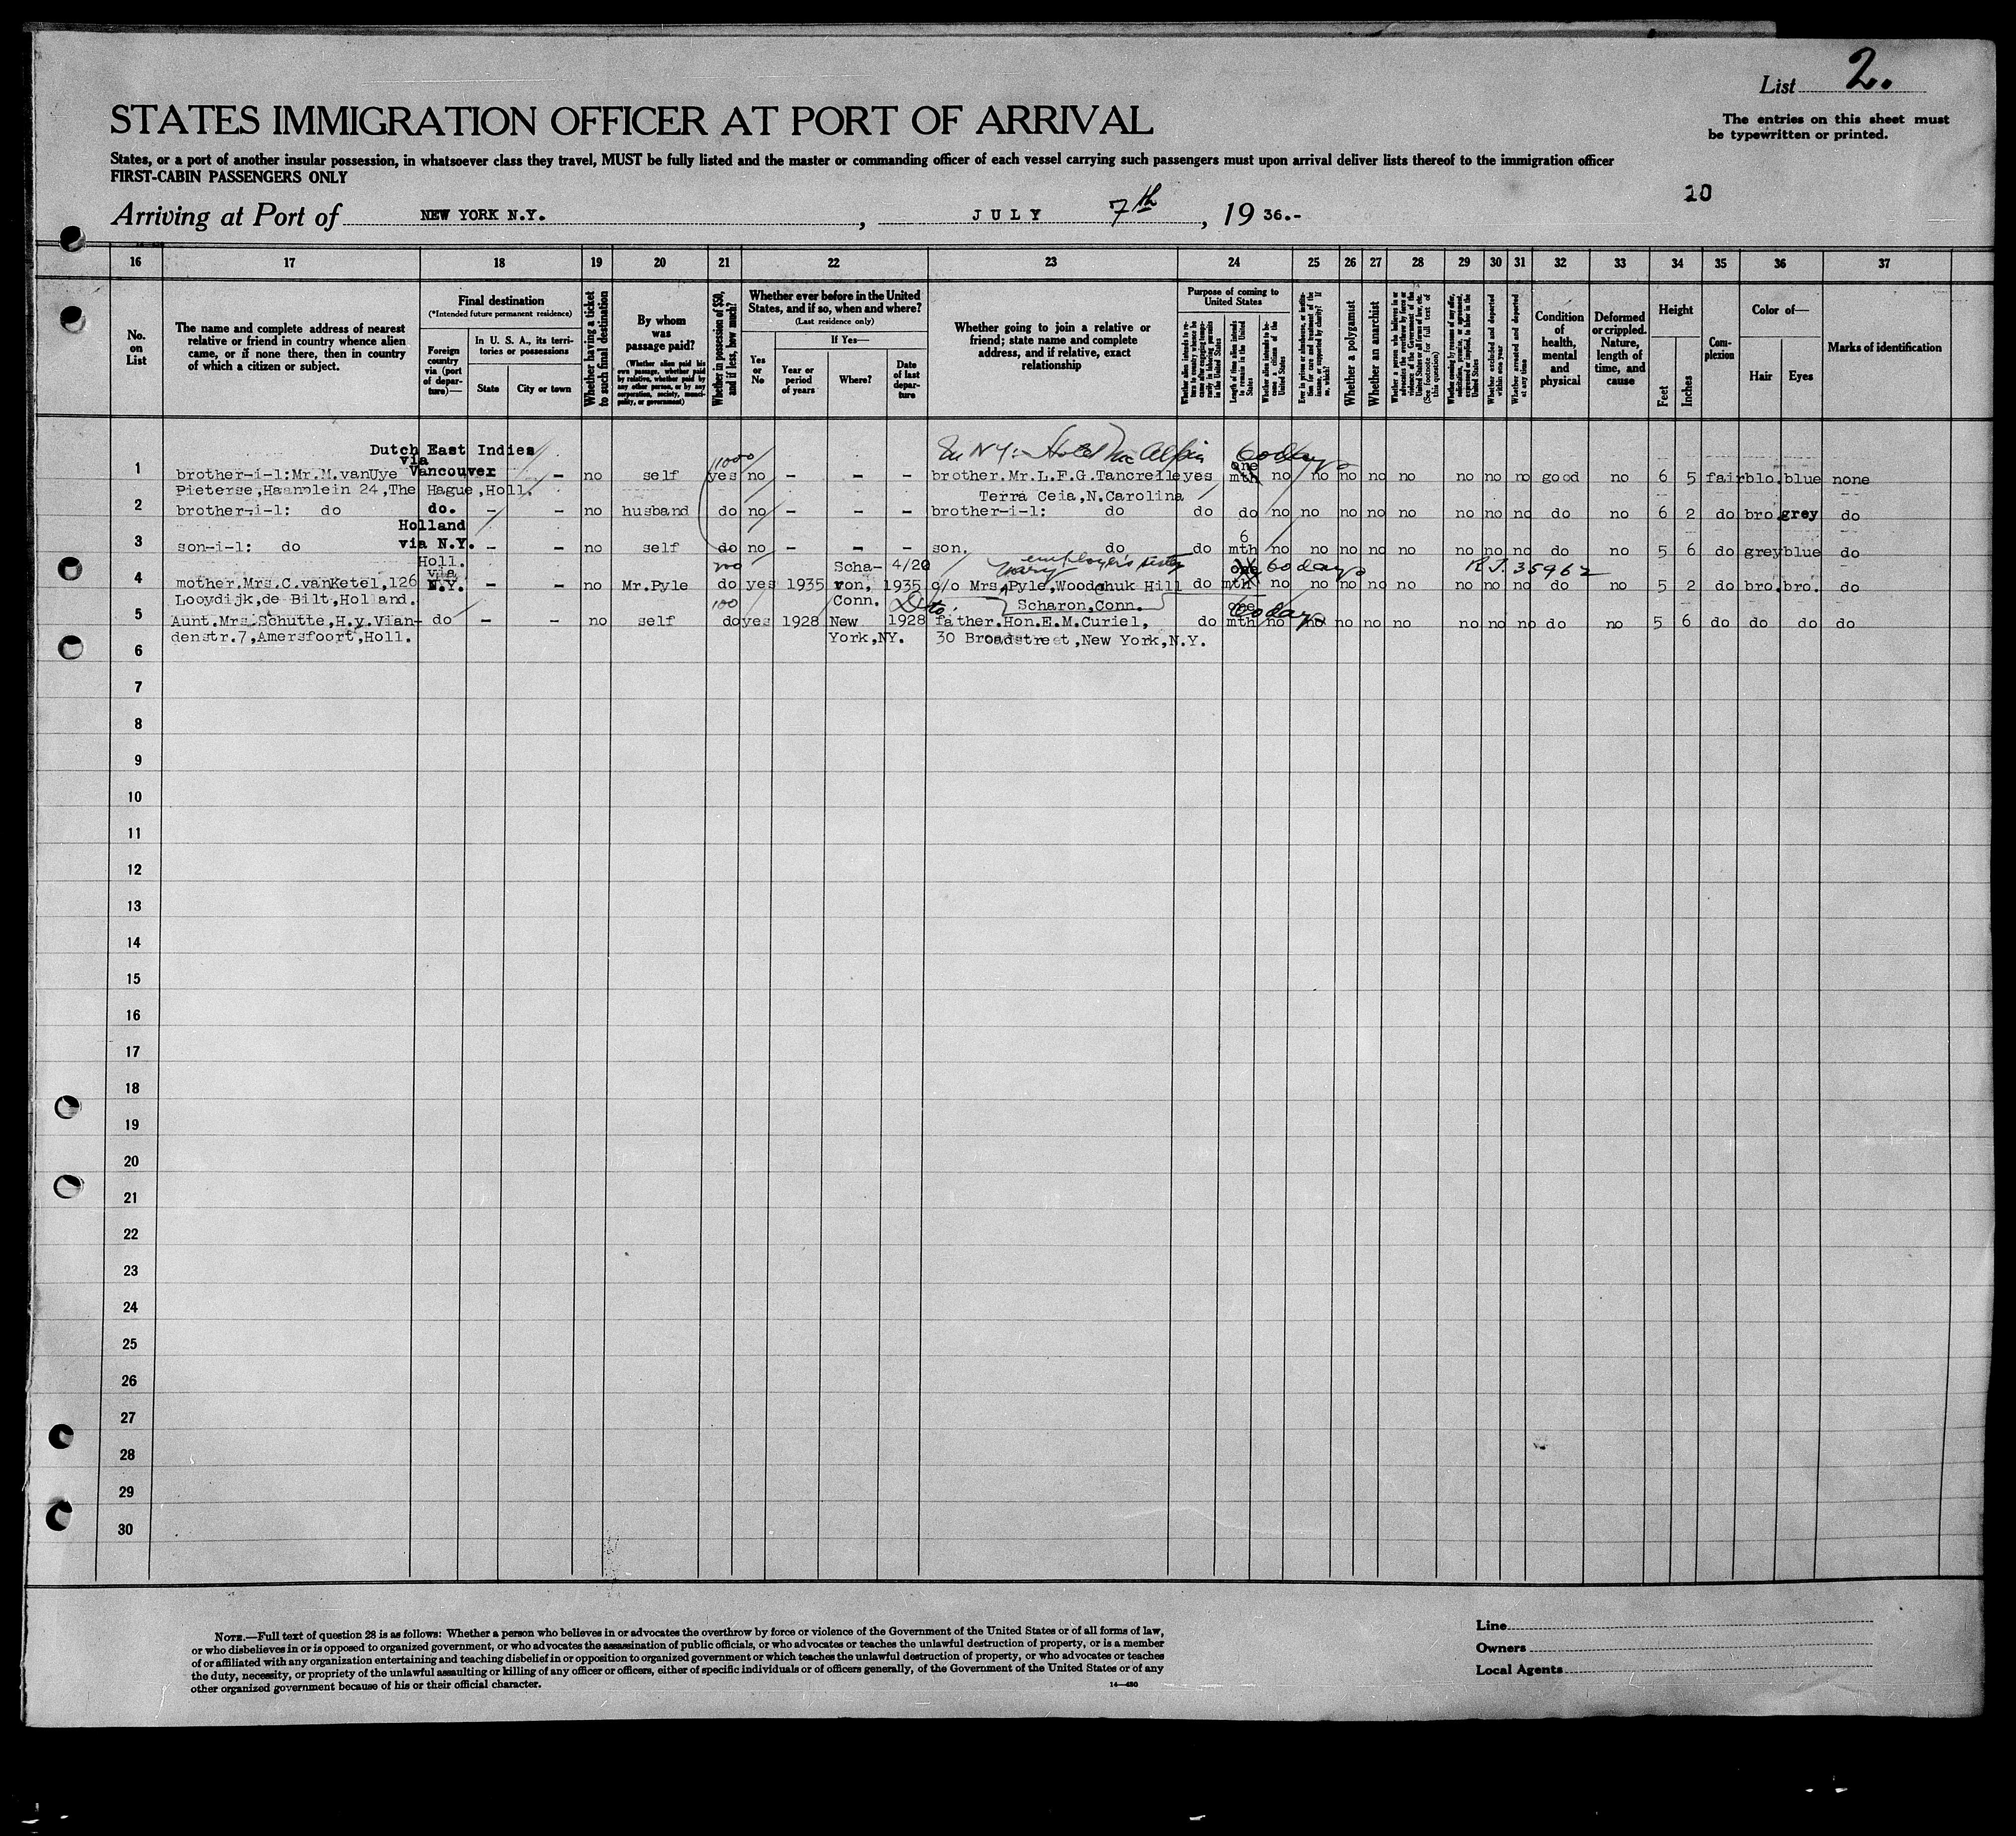 List 2.
STATES IMMIGRATION OFFICER AT PORT OF ARRIVAL
The entries on this sheet must
be typewritten or printed.
States, or a port of another insular possession, in whatsoever class they travel, MUST be fully listed and the master or commanding officer of each vessel carrying such passengers must upon arrival deliver lists thereof to the immigration officer
FIRST-CABIN PASSENGERS ONLY
20
Arriving at Port of NEW YORK N.Y. , JULY 7th , 19 36.-
16 17 18 19 20 21 22 23 24 25 26 27 28 29 30 31 32 33 34 35 36 37
No.
on
List
The name and complete address of nearest
relative or friend in country whence alien
came, or if none there, then in country
of which a citizen or subject.
Final destination
(*Intended future permanent residence)
Foreign
country
via (port
of depar-
ture)—
In U. S. A., its terri-
tories or possessions
State City or town
Whether having a ticket
to such final destination
By whom
was
passage paid?
(Whether alien paid his
own passage, whether paid
by relative, whether paid by
any other person, or by any
corporation, society, munici-
pality, or government)
Whether in possession of $50,
and if less, how much?
Whether ever before in the United
States, and if so, when and where?
(Last residence only)
Yes
or
No
If Yes—
Year or
period
of years
Where?
Date
of last
depar-
ture
Whether going to join a relative or
friend; state name and complete
address, and if relative, exact
relationship
Purpose of coming to
United States
Length of time alien intends
to remain in the United
States
Whether alien intends to be-
come a citizen of the
United States
Whether a polygamist
Whether an anarchist
Whether excluded and deported
within one year
Whether arrested and deported
at any time
Condition
of
health,
mental
and
physical
Deformed
or crippled.
Nature,
length of
time, and
cause
Height
Feet Inches
Com-
plexion
Color of—
Hair Eyes
Marks of identification
Dutch East Indies
via
In N.Y: Hotel Mc Alpin 60 days
11000 one
1 brother-i-l:Mr.M.vanUye Vancouver - no self yes no - - - brother.Mr.L.F.G.Tancrelle yes mth no no no no no no no no good no 6 5 fair blo. blue none
Pieterse,Haanplein 24,The Hague,Holl. Terra Ceia,N.Carolina
2 brother-i-l: do do. - - no husband do no - - - brother-i-l: do do do no no no no no no no no do no 6 2 do bro. grey do
Holland
3 son-i-l: do via N.Y. - - no self do no - - - son. do do 6 mth no no no no no no no no do no 5 6 do grey blue do
Holl. 200 Scha- 4/20 Mary employer's sister one 60 days RJ 35962
via
4 mother.Mrs.C.vanKetel,126 N.Y. - - no Mr.Pyle do yes 1935 ron, 1935 c/o Mrs Pyle,Woodchuk Hill do mth no no no no no no no no do no 5 2 do bro. bro. do
Looydijk,de Bilt,Holland. 100 Conn. Scharon,Conn. one 60 days
5 Aunt.Mrs.Schutte,H.v.Vian- do - - no self do yes 1928 New 1928 father.Hon.E.M.Curiel, do mth no no no no no no no no do no 5 6 do do do do
denstr.7,Amersfoort,Holl. York,NY. 30 Broadstreet,New York,N.Y.
6
7
8
9
10
11
12
13
14
15
16
17
18
19
20
21
22
23
24
25
26
27
28
29
30
NOTE.—Full text of question 28 is as follows: Whether a person who believes in or advocates the overthrow by force or violence of the Government of the United States or of all forms of law,
or who disbelieves in or is opposed to organized government, or who advocates the assassination of public officials, or who advocates or teaches the unlawful destruction of property, or is a member
of or affiliated with any organization entertaining and teaching disbelief in or opposition to organized government or which teaches the unlawful destruction of property, or who advocates or teaches
the duty, necessity, or propriety of the unlawful assaulting or killing of any officer or officers, either of specific individuals or of officers generally, of the Government of the United States or of any
other organized government because of his or their official character.
14—480
Line
Owners
Local Agents